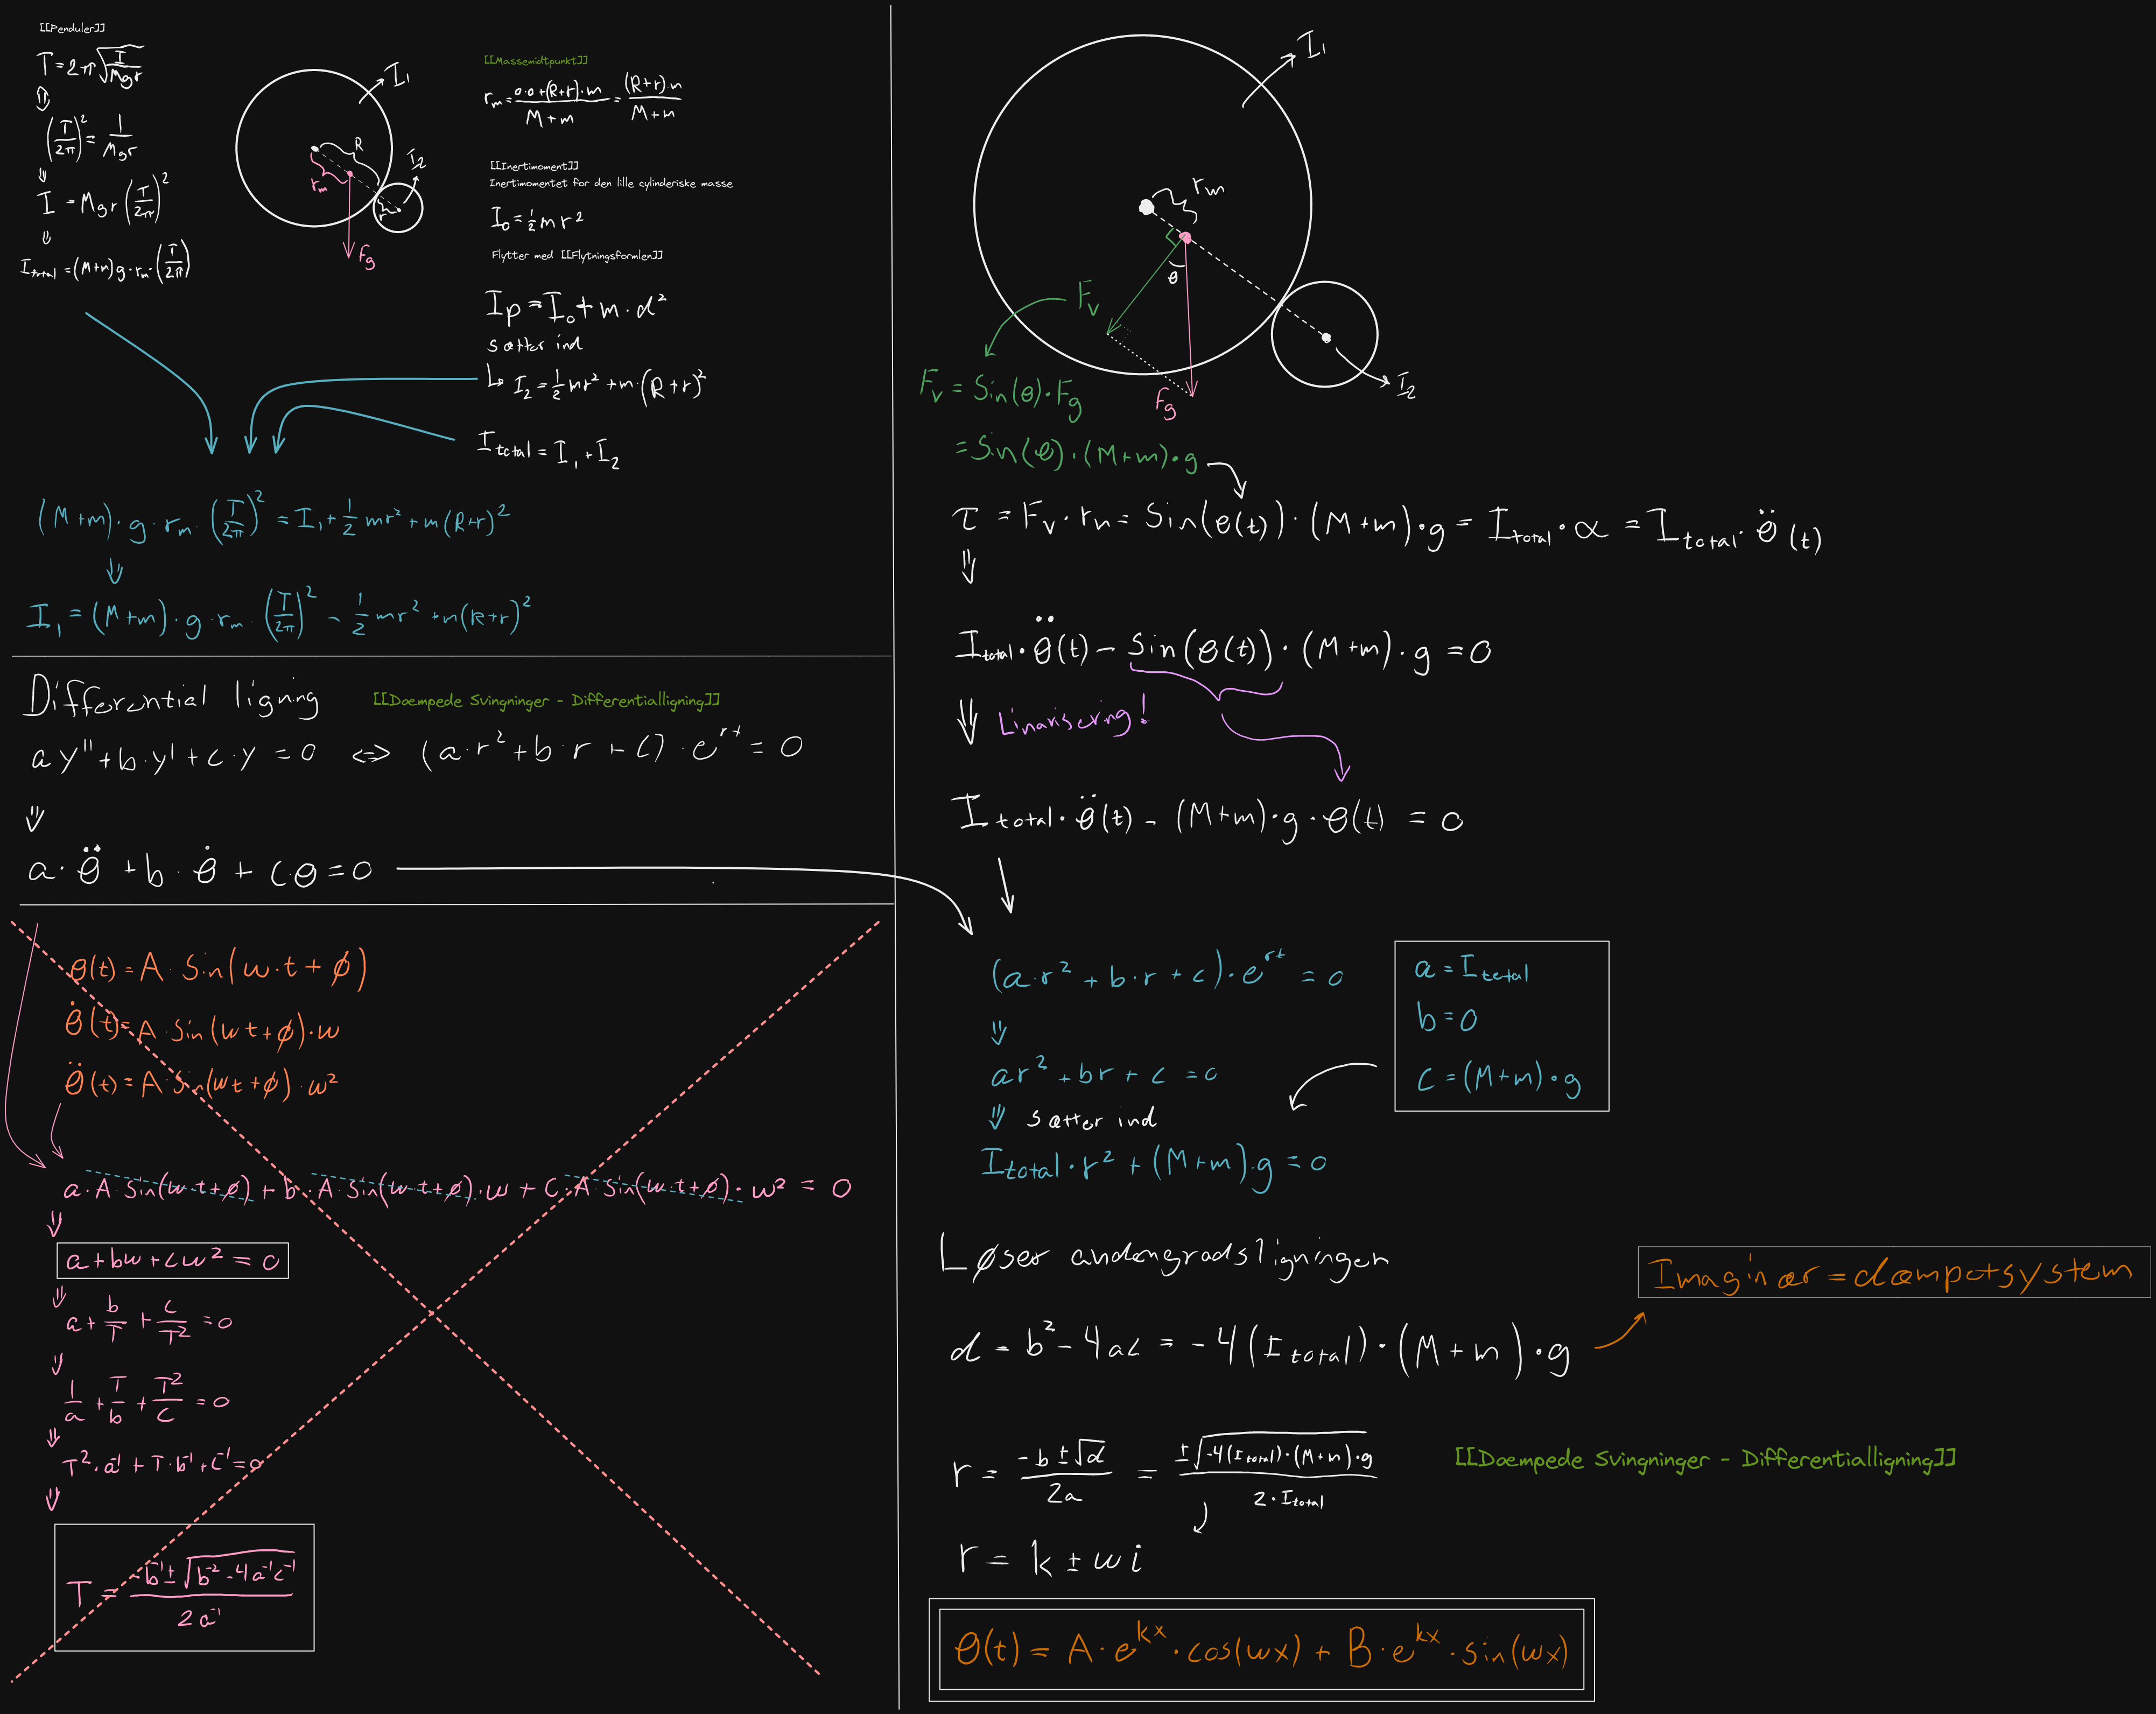 [[Penduler]]
T = 2π √(I / Mgr)
⇕
(T/2π)² = I / Mgr
⇓
I = Mgr (T/2π)²
⇓
I_total = (M+m) g · r_m · (T/2π)
I₁
R
r_m
I₂
r
F_g
[[Massemidtpunkt]]
r_m = (0·0+(R+r)·m) / (M+m) = ((R+r)·m) / (M+m)
[[Inertimoment]]
Inertimomentet for den lille cylinderiske masse
I₀ = ½ m r²
Flytter med [[Flytningsformlen]]
I_p = I₀ + m · d²
sætter ind
↳ I₂ = ½ mr² + m·(R+r)²
I_total = I₁ + I₂
(M+m) · g · r_m · (T/2π)² = I₁ + ½ mr² + m(R+r)²
⇓
I₁ = (M+m) · g · r_m · (T/2π)² - ½ mr² + m(R+r)²
Differential ligning
[[Daempede Svingninger - Differentialligning]]
a y'' + b·y' + c·y = 0 ⇔ (a·r² + b·r + c) · e^rt = 0
⇓
a·θ̈ + b·θ̇ + c·θ = 0
θ(t) = A · Sin(w·t + ϕ)
θ̇(t) = A · Sin(wt + ϕ) · w
θ̈(t) = A · Sin(wt + ϕ) · w²
a·A·Sin(w·t+ϕ) + b·A·Sin(w·t+ϕ)·w + C·A·Sin(w·t+ϕ)·w² = 0
⇓
a + bw + cw² = 0
⇓
a + b/T + c/T² = 0
⇓
1/a + T/b + T²/c = 0
⇓
T²·a⁻¹ + T·b⁻¹ + c⁻¹ = 0
⇓
T = (-b⁻¹ ± √(b⁻² - 4a⁻¹c⁻¹)) / 2a⁻¹
I₁
r_m
θ
F_v
F_g
I₂
F_v = Sin(θ)·F_g
= Sin(θ)·(M+m)·g
τ = F_v · r_m = Sin(θ(t))·(M+m)·g = I_total · α = I_total · θ̈(t)
⇓
I_total · θ̈(t) - Sin(θ(t))·(M+m)·g = 0
⇓ Linarisering!
I_total · θ̈(t) - (M+m)·g·θ(t) = 0
(a·r² + b·r + c)·e^rt = 0
⇓
ar² + br + c = 0
⇓ sætter ind
I_total · r² + (M+m)·g = 0
a = I_total
b = 0
c = (M+m)·g
Løser andengradsligningen
d = b² - 4ac = -4(I_total)·(M+m)·g
Imaginær = dæmpetsystem
r = (-b ± √d) / 2a = ±√(-4(I_total)·(M+m)·g) / 2·I_total
[[Daempede Svingninger - Differentialligning]]
r = k ± wi
θ(t) = A·e^kx · cos(wx) + B·e^kx · sin(wx)